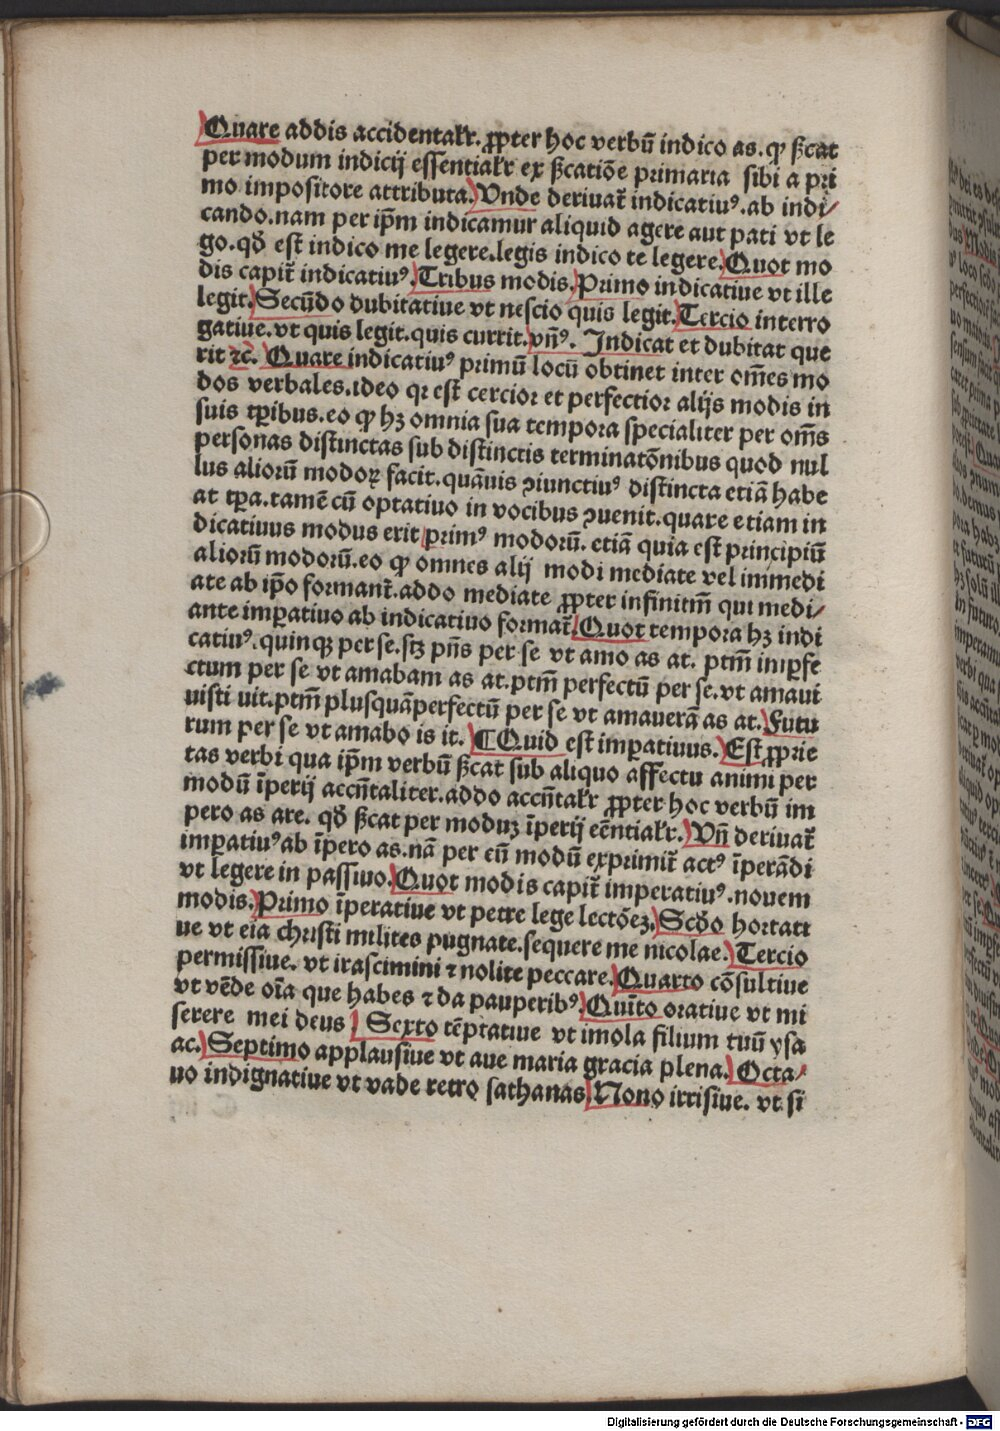 Quare addis accidentalr̄. ꝓpter hoc verbū indico as. ꝙ ẞcat
per modum indicij essentialr̄ ex ẞcatiōe primaria sibi a pri
mo impositore attributa. Unde deriuat̄ indicatiuꝰ. ab indi⸗
cando. nam per ip̄m indicamur aliquid agere aut pati vt le
go. qđ est indico me legere. legis indico te legere. Quot mo
dis capit̄ indicatiuꝰ. Tribus modis. Primo indicatiue vt ille
legit. Secūdo dubitatiue vt nescio quis legit. Tercio interro
gatiue. vt quis legit. quis currit. vn̄ꝰ. Indicat et dubitat que
rit ⁊c̄. Quare indicatiuꝰ primū locū obtinet inter om̄es mo
dos verbales. ideo qꝛ est cercior et perfectior alijs modis in
suis tꝑibus. eo ꝙ hꝫ omnia sua tempora specialiter per om̄s
personas distinctas sub distinctis terminatōnibus quod nul
lus aliorū modoꝝ facit. quāuis ↄiunctiuꝰ distincta etiā habe
at tꝑa. tamē cū optatiuo in vocibus ↄuenit. quare etiam in
dicatiuus modus erit primꝰ modorū. etiā quia est principiū
aliorū modorū. eo ꝙ omnes alij modi mediate vel immedi
ate ab ip̄o formant̄. addo mediate ꝓpter infinitm̄ qui medi⸗
ante imꝑatiuo ab indicatiuo format̄. Quot tempora hꝫ indi
catiuꝰ. quinqꝫ per se. stꝫ pn̄s per se vt amo as at. ptm̄ imꝑfe
ctum per se vt amabam as at. ptm̄ perfectū per se. vt amaui
uisti uit. ptm̄ plusquāperfectū per se vt amauerā as at. Futu
rum per se vt amabo is it. ¶ Quid est imꝑatiuus. Est ꝓprie
tas verbi qua ip̄m verbū ẞcat sub aliquo affectu animi per
modū īperij accn̄taliter. addo accn̄talr̄ ꝓpter hoc verbū im
pero as are. qđ ẞcat per moduꝫ īperij eēntialr̄. Vn̄ deriuat̄
imꝑatiuꝰ ab īpero as. nā per eū modū exprimit̄ actꝰ īperādi
vt legere in passiuo. Quot modis capit̄ imperatiuꝰ. nouem
modis. Primo īperatiue vt petre lege lectōeꝫ. Scđo hortati
ue vt eia christi milites pugnate. sequere me nicolae. Tercio
permissiue. vt irascimini ⁊ nolite peccare. Quarto cōsultiue
vt vēde oīa que habes ⁊ da pauperibꝰ. Quīto oratiue vt mi
serere mei deus Sexto tēptatiue vt imola filium tuū ysa
ac. Septimo applausiue vt aue maria gracia plena. Octa⸗
uo indignatiue vt vade retro sathanas. Nono irrisiue. vt si
Digitalisierung gefördert durch die Deutsche Forschungsgemeinschaft - DFG